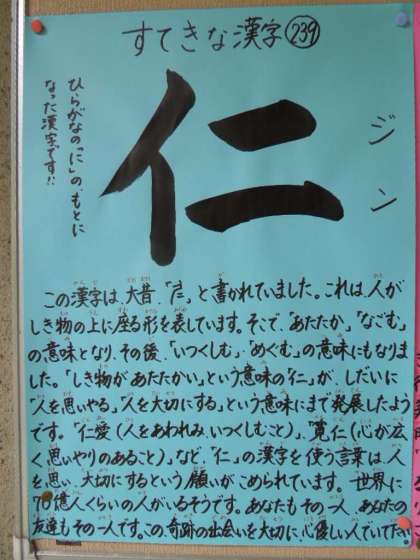 すてきな漢字239
仁
ジン
ひらがなの「に」の、もとに
なった漢字です!!
この漢字は、大昔、「」と書かれていました。これは、人が
しき物の上に座る形を表しています。そこで、「あたたか」「なごむ」
の意味となり、その後、「いつくしむ」「めぐむ」の意味にもなりま
した。「しき物があたたかい」という意味の「仁」が、しだいに
「人を思いやる」「人を大切にする」という意味にまで発展したよう
です。「仁愛(人をあわれみ、いつくしむこと)」「寛仁(心が広
く思いやりのあること)」など、「仁」の漢字を使う言葉は、人
を思い、大切にするという願いがこめられています。世界に
70億人くらいの人がいるそうです。あなたもその一人、あなたの
友達もその一人です。この奇跡の出会いを大切に、心優しい人でいて下さい